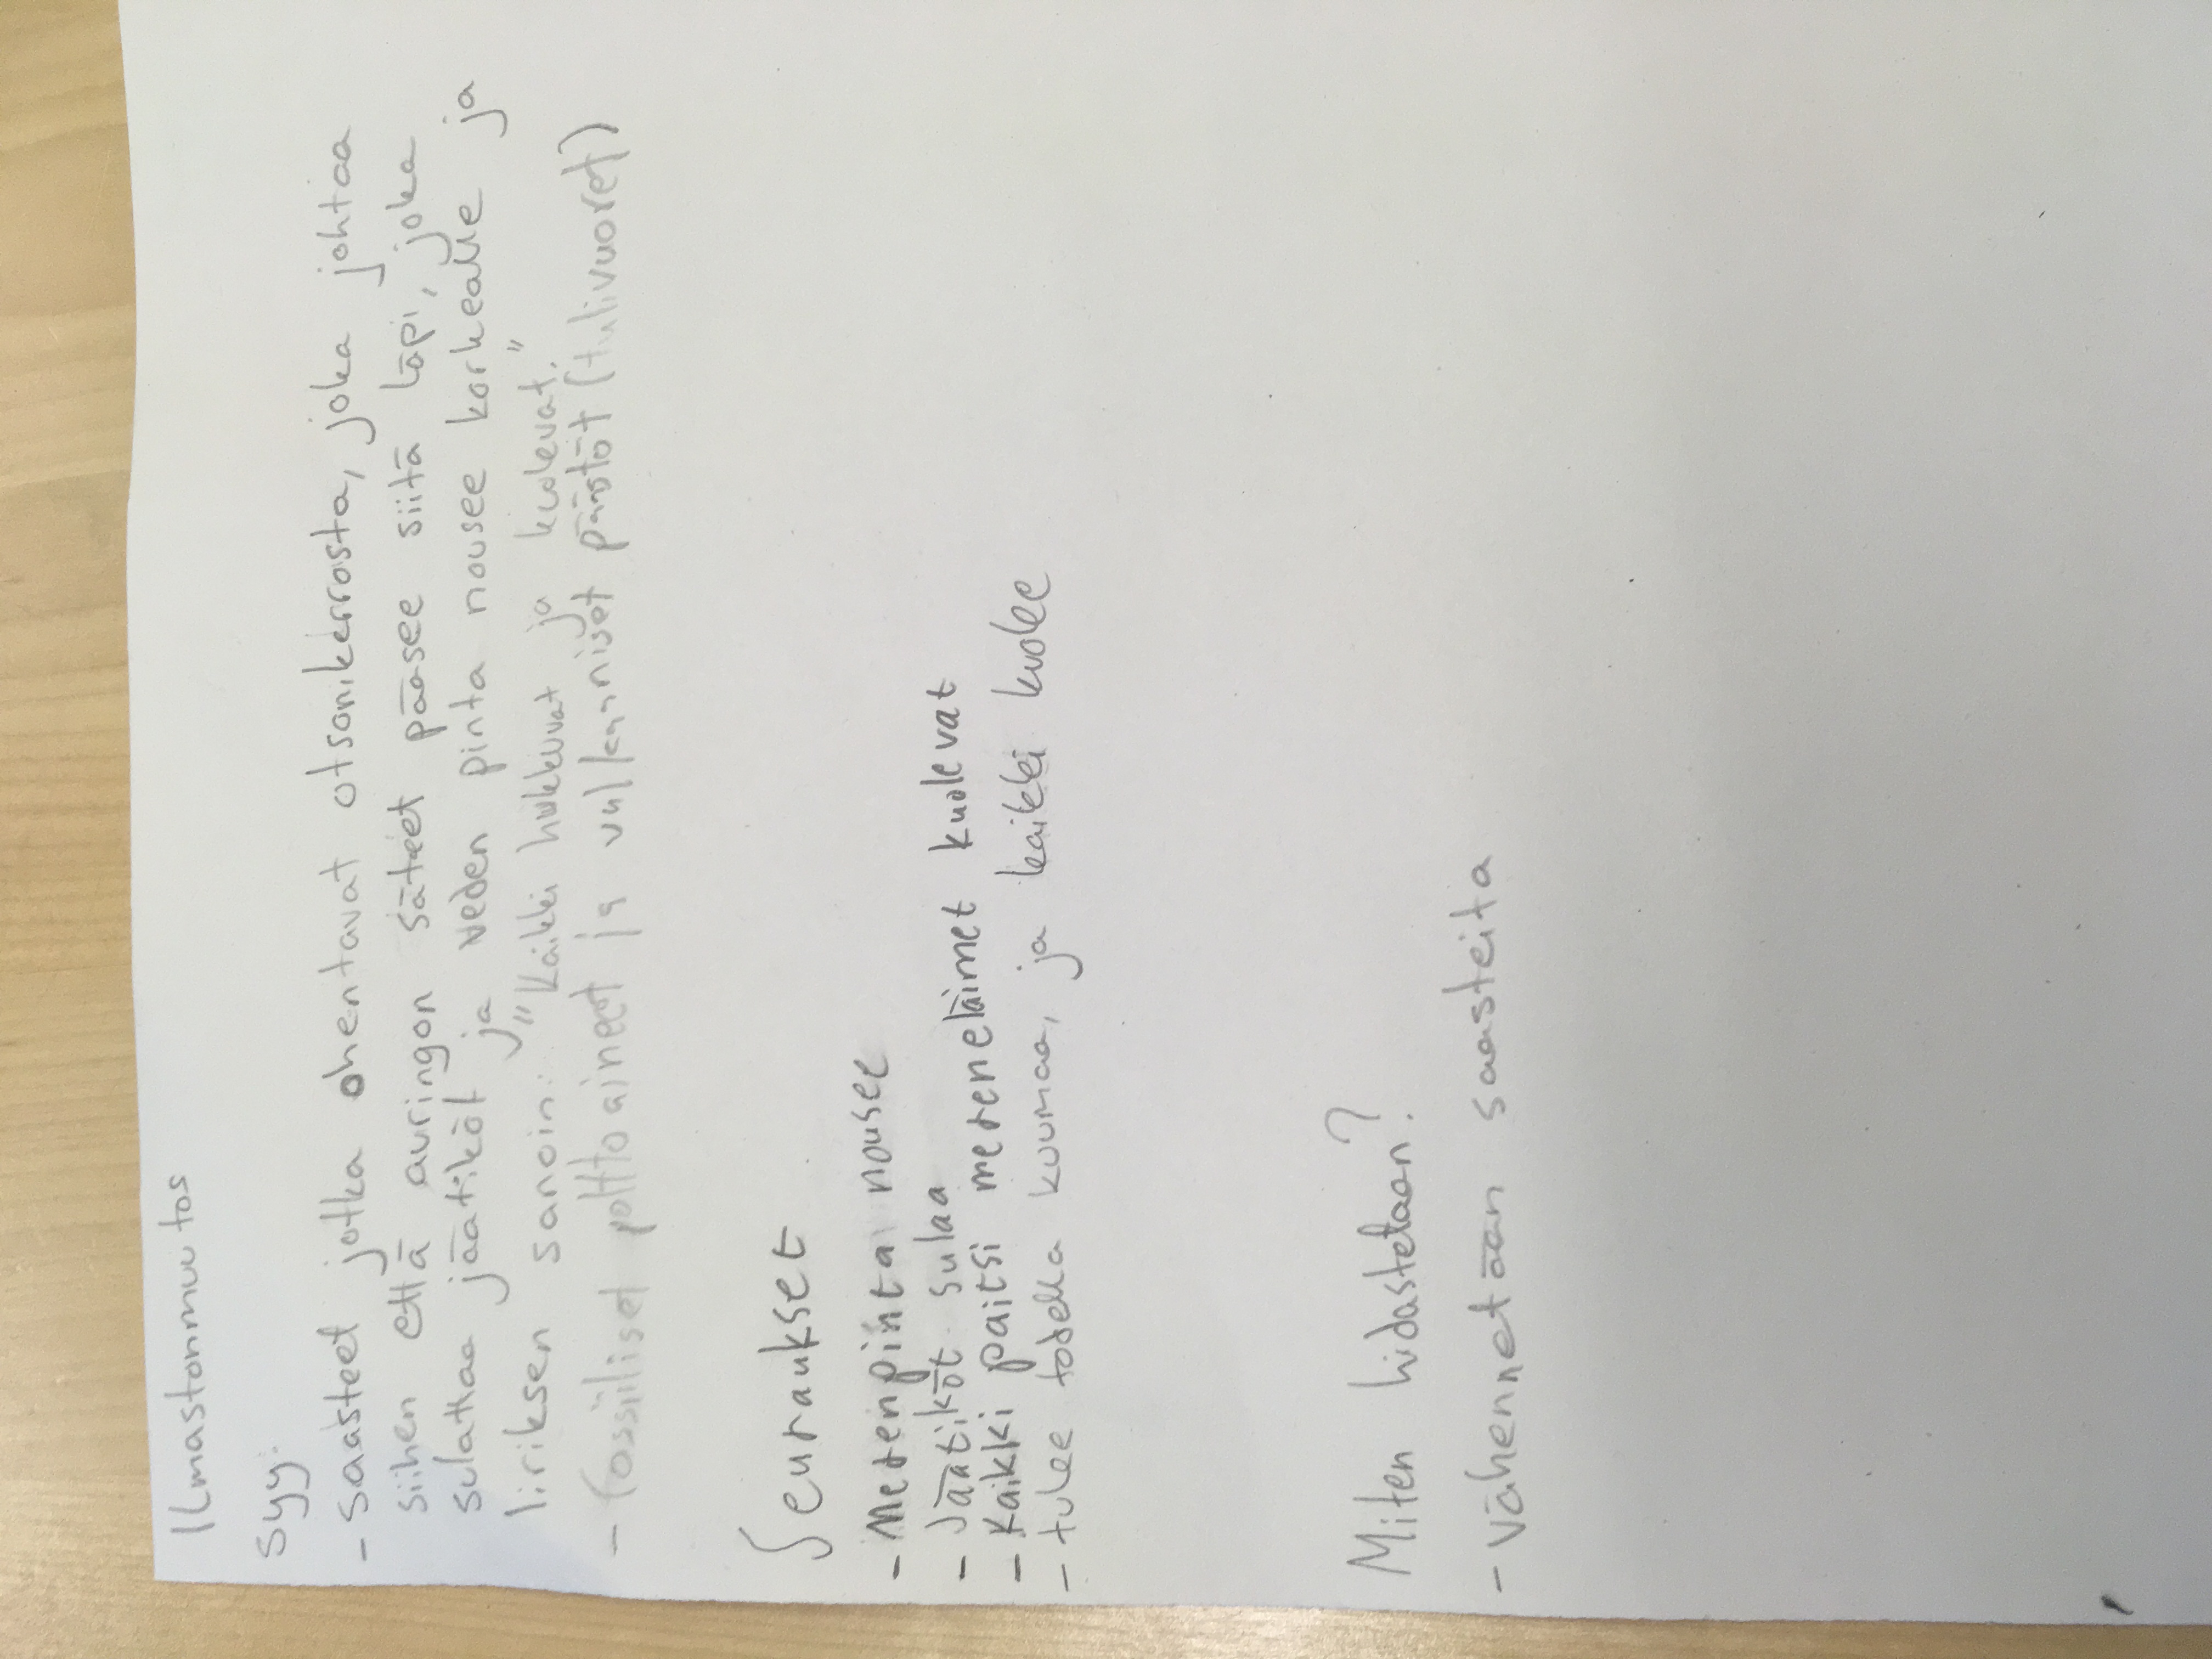 Ilmastonmuutos
Syy:
- saasteet jotka ohentavat otsonikerrosta, joka johtaa
siihen että auringon säteet pääsee siitä läpi, joka
sulattaa jäätiköt ja veden pinta nousee korkealle ja
Iiriksen sanoin: "Kaikki hukkuvat ja kuolevat."
- fossiiliset polttoaineet ja vulkaaniset päästöt (tulivuoret)
Seuraukset
- Merenpinta nousee
- Jäätiköt sulaa
- Kaikki paitsi mereneläimet kuolevat
- tulee todella kuumaa, ja kaikki kuolee
Miten hidastetaan?
- Vähennetään saasteita